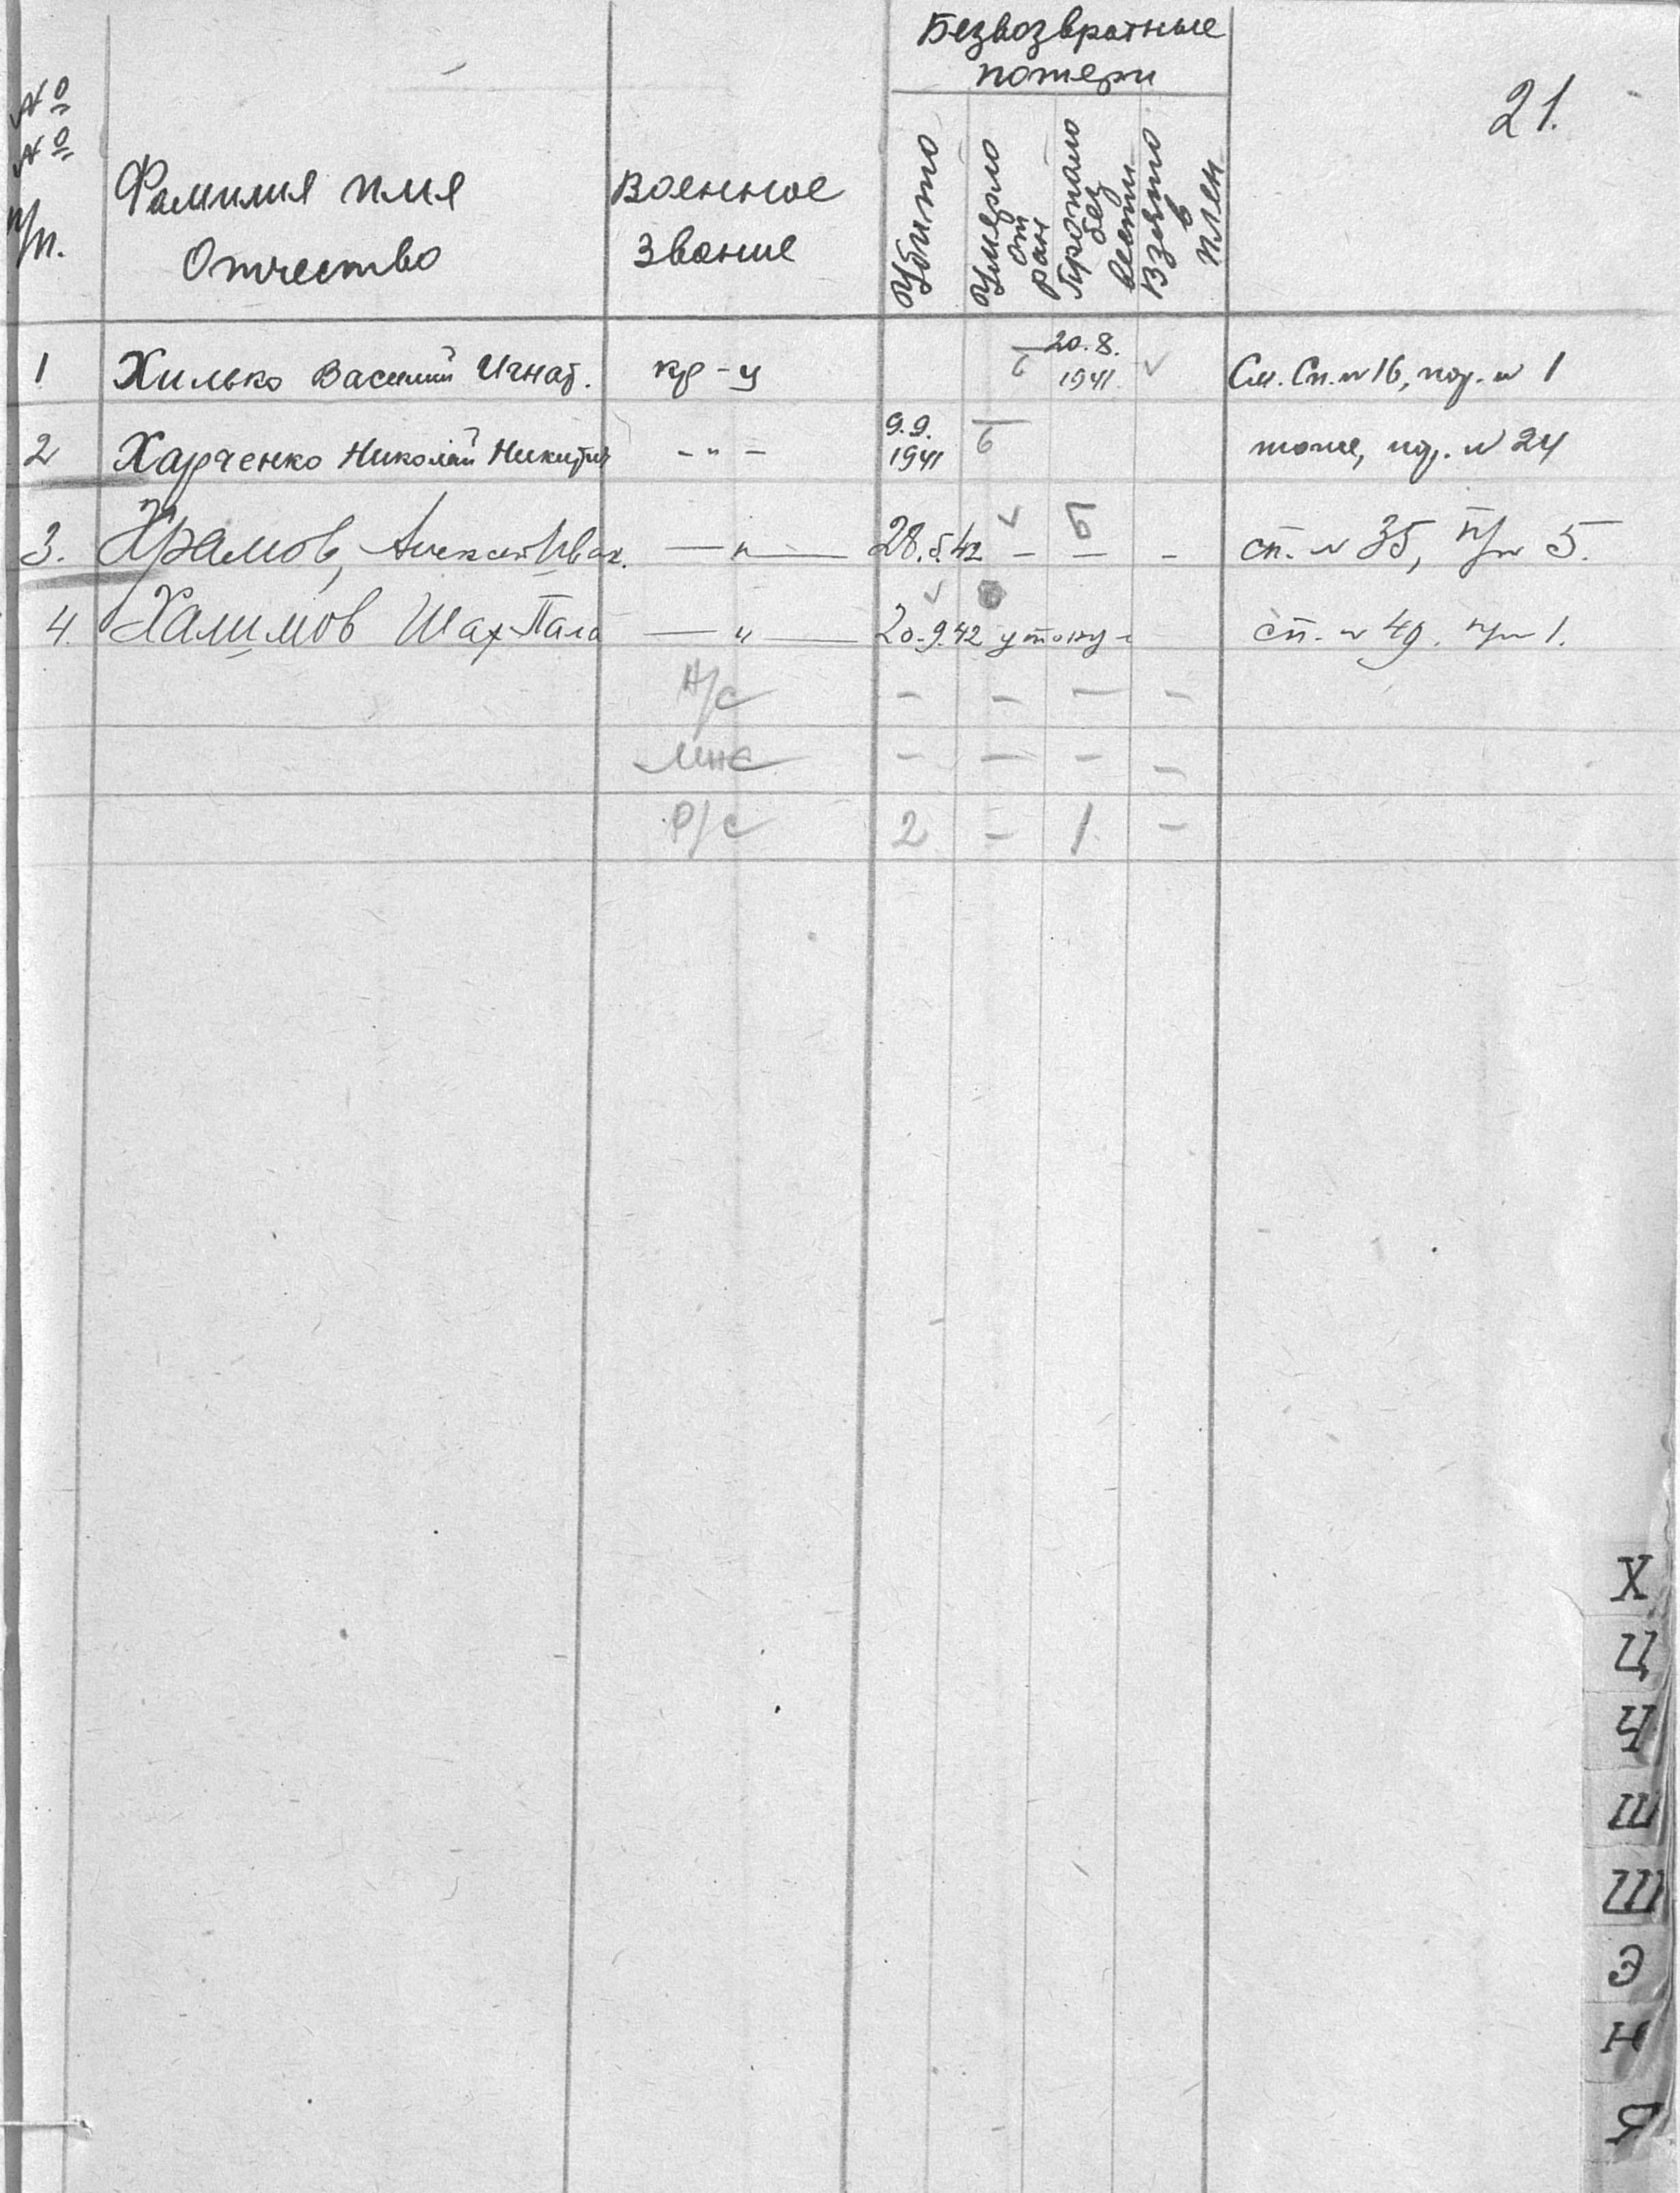 21.
№ № п/п.
Фамилия имя Отчество
Военное звание
Безвозвратные потери
Убито
Умерло от ран
Пропало без вести
Взято в плен
1 Хилько Василий Игнат. кр-ц б 20.8.1941 См. Сп. № 16, пор. № 1
2 Харченко Николай Никитич - " - 9.9.1941 б тоже, пор. № 24
3. Храмов, Алексей Иван. — " — 28.5.42 - Б - - сп. № 35, п/№ 5.
4. Халимов Шах Пала — " — 20.9.42 утонул сп. № 49. п/№ 1.
Н/с - - - -
мнс - - - -
Р/с 2 - 1 -
Х
Ц
Ч
Ш
Щ
Э
Я